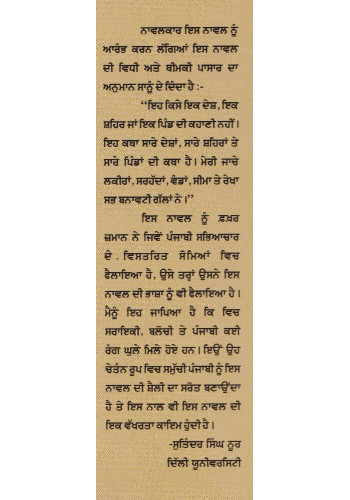 ਨਾਵਲਕਾਰ ਇਸ ਨਾਵਲ ਨੂੰ
ਆਰੰਭ ਕਰਨ ਲੱਗਿਆਂ ਇਸ ਨਾਵਲ
ਦੀ ਵਿਧੀ ਅਤੇ ਥੀਮਕੀ ਪਾਸਾਰ ਦਾ
ਅਨੁਮਾਨ ਸਾਨੂੰ ਦੇ ਦਿੰਦਾ ਹੈ :-
“ਇਹ ਕਿਸੇ ਇਕ ਦੇਸ਼, ਇਕ
ਸ਼ਹਿਰ ਜਾਂ ਇਕ ਪਿੰਡ ਦੀ ਕਹਾਣੀ ਨਹੀਂ।
ਇਹ ਕਥਾ ਸਾਰੇ ਦੇਸ਼ਾਂ, ਸਾਰੇ ਸ਼ਹਿਰਾਂ ਤੇ
ਸਾਰੇ ਪਿੰਡਾਂ ਦੀ ਕਥਾ ਹੈ। ਮੇਰੀ ਜਾਚੇ
ਲਕੀਰਾਂ, ਸਰਹੱਦਾਂ, ਵੰਡਾਂ, ਸੀਮਾ ਤੇ ਰੇਖਾ
ਸਭ ਬਨਾਵਟੀ ਗੱਲਾਂ ਨੇ।”
ਇਸ ਨਾਵਲ ਨੂੰ ਫ਼ਖ਼ਰ
ਜ਼ਮਾਨ ਨੇ ਜਿਵੇਂ ਪੰਜਾਬੀ ਸਭਿਆਚਾਰ
ਦੇ ਵਿਸਤਰਿਤ ਸੋਮਿਆਂ ਵਿਚ
ਫੈਲਾਇਆ ਹੈ, ਉਸੇ ਤਰ੍ਹਾਂ ਉਸਨੇ ਇਸ
ਨਾਵਲ ਦੀ ਭਾਸ਼ਾ ਨੂੰ ਵੀ ਫੈਲਾਇਆ ਹੈ।
ਮੈਨੂੰ ਇਹ ਜਾਪਿਆ ਹੈ ਕਿ ਵਿਚ
ਸਰਾਇਕੀ, ਬਲੋਚੀ ਤੇ ਪੰਜਾਬੀ ਕਈ
ਰੰਗ ਘੁਲੇ ਮਿਲੇ ਹੋਏ ਹਨ। ਇਉਂ ਉਹ
ਚੇਤੰਨ ਰੂਪ ਵਿਚ ਸਮੁੱਚੀ ਪੰਜਾਬੀ ਨੂੰ ਇਸ
ਨਾਵਲ ਦੀ ਸ਼ੈਲੀ ਦਾ ਸਰੋਤ ਬਣਾਉਂਦਾ
ਹੈ ਤੇ ਇਸ ਨਾਲ ਵੀ ਇਸ ਨਾਵਲ ਦੀ
ਇਕ ਵੱਖਰਤਾ ਕਾਇਮ ਹੁੰਦੀ ਹੈ।
-ਸੁਤਿੰਦਰ ਸਿੰਘ ਨੂਰ
ਦਿੱਲੀ ਯੂਨੀਵਰਸਿਟੀ